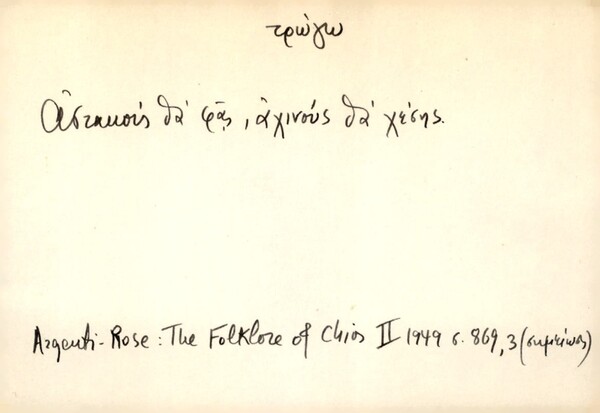 τρώγω
Ἀστακούς θά φᾶς, ἀχινούς θά χέσης.
Argenti-Rose: The Folklore of Chios II 1949 σ. 869, 3 (σημείωσις)